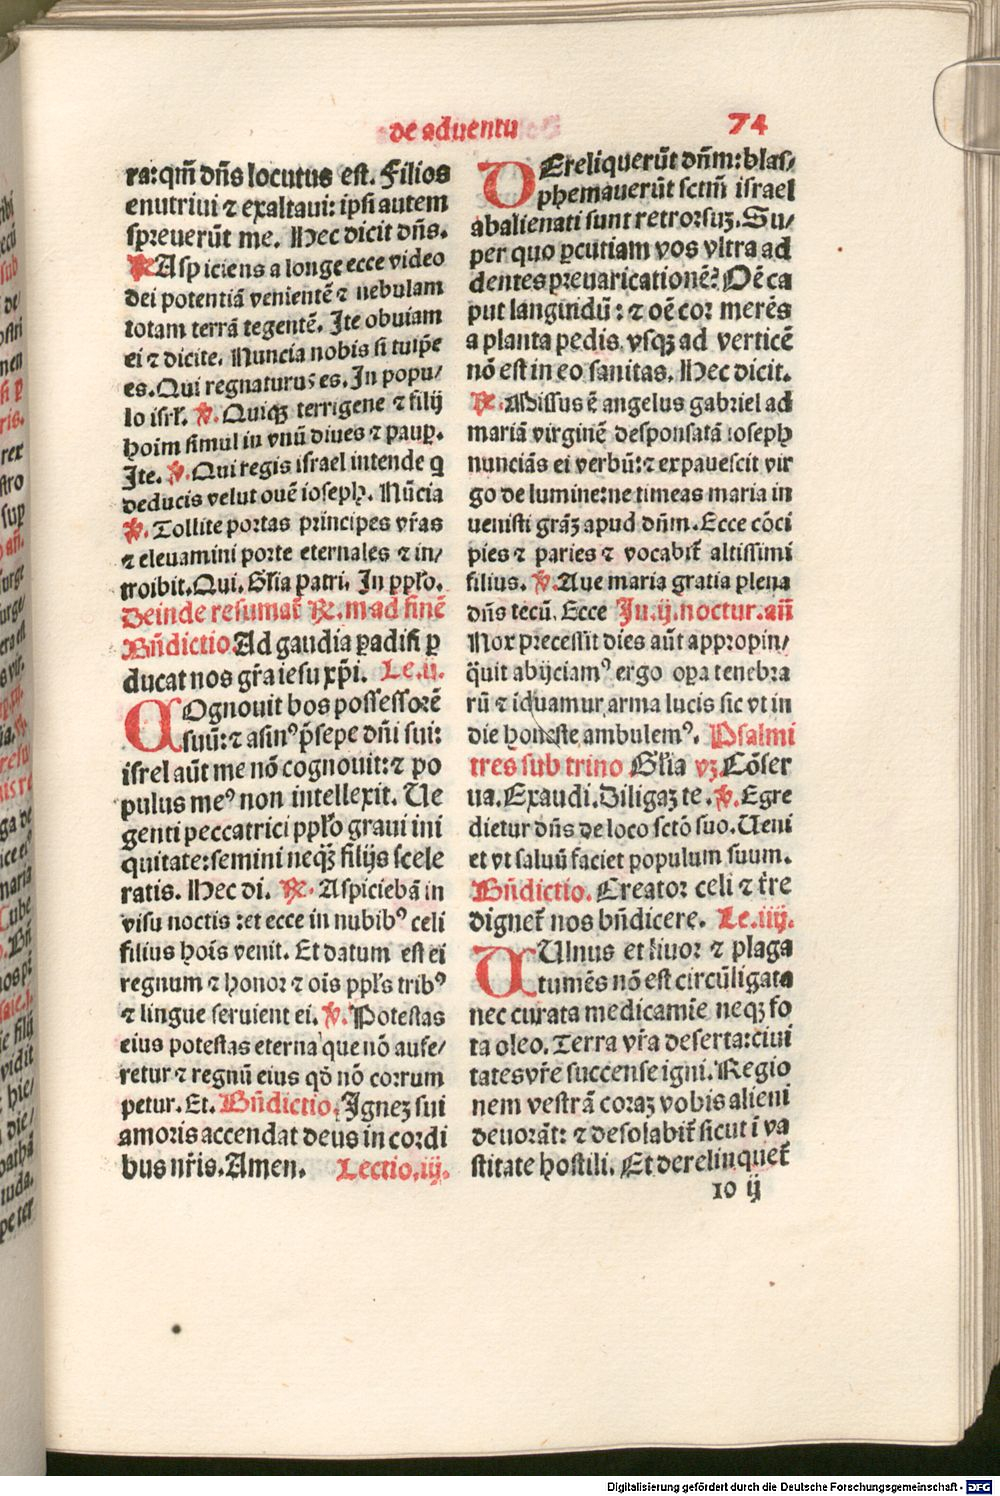 de aduentu
74
ra: qm̄ dn̄s locutus est. Filios
enutriui ⁊ exaltaui: ipsi autem
spreuerūt me. Hec dicit dn̄s.
℟ Aspiciens a longe ecce video
dei potentiā venientē ⁊ nebulam
totam terrā tegentē. Ite obuiam
ei ⁊ dicite. Nuncia nobis si tu ip̄e
es. Qui regnaturus es. In popu/
lo isrl̄. ℣. Quiqꝫ terrigene ⁊ filij
hoim simul in vnū diues ⁊ paup̲.
Ite. ℣. Qui regis israel intende q̲
deducis velut ouē ioseph. Nūcia
℣. Tollite portas principes vr̄as
⁊ eleuamini porte eternales ⁊ in/
troibit. Qui. Gl̄ia patri. In ppl̄o.
Deinde resumat᷑ ℟. m ad finē
Bn̄dictio. Ad gaudia ꝑadisi ꝑ
ducat nos gr̄a iesu xp̄i. Le. ij.
COgnouit bos possessorē
suū: ⁊ asinꝰ p̄sepe dn̄i sui:
isrel aūt me nō cognouit: ⁊ po
pulus meꝰ non intellexit. Ue
genti peccatrici ppl̄o graui ini
quitate: semini neqꝫ filijs scele
ratis. Hec di. ℟. Aspiciebā in
visu noctis: et ecce in nubibꝰ celi
filius hoīs venit. Et datum est ei
regnum ⁊ honor ⁊ oīs ppl̄s tribꝰ
⁊ lingue seruient ei. ℣. Potestas
eius potestas eterna que nō aufe/
retur ⁊ regnū eius qd̄ nō corrum
petur. Et. Bn̄dictio. Ignez sui
amoris accendat deus in cordi
bus nr̄is. Amen. Lectio. iij.
DEreliquerūt dn̄m: blas/
phemauerūt sctm̄ israel
abalienati sunt retrorsuꝫ. Su/
per quo ꝑcutiam vos vltra ad
dentes preuaricationē? Oē ca
put languidū: ⁊ oē cor merēs
a planta pedis vsqꝫ ad verticē
nō est in eo sanitas. Hec dicit.
℟. Missus ē angelus gabriel ad
mariā virginē desponsatā ioseph
nunciās ei verbū: ⁊ expauescit vir
go de lumine: ne timeas maria in
uenisti grāꝫ apud dn̄m. Ecce cōci
pies ⁊ paries ⁊ vocabit᷑ altissimi
filius. ℣. Aue maria gratia plena
dn̄s tecū. Ecce In. ij. noctur. an̄
Nox precessit dies aūt appropin/
q̄uit abijciamꝰ ergo oꝑa tenebra
rū ⁊ iduamur arma lucis sic vt in
die honeste ambulemꝰ. Psalmi
tres sub trino Gl̄ia vꝫ. Cōser
ua. Exaudi. Diligaꝫ te. ℣. Egre
dietur dn̄s de loco sctō suo. Ueni
et vt saluū faciet populum suum.
Bn̄dictio. Creator celi ⁊ tr̄re
dignet᷑ nos bn̄dicere. Le. iiij.
UUlnus et liuor ⁊ plaga
tumēs nō est circūligata
nec curata medicamīe neqꝫ fo
ta oleo. Terra vr̄a deserta: ciui
tates vr̄e succense igni. Regio
nem vestrā coraꝫ vobis alieni
deuorāt: ⁊ desolabit᷑ sicut ī va
stitate hostili. Et derelinquet᷑
10 ij
Digitalisierung gefördert durch die Deutsche Forschungsgemeinschaft - DFG